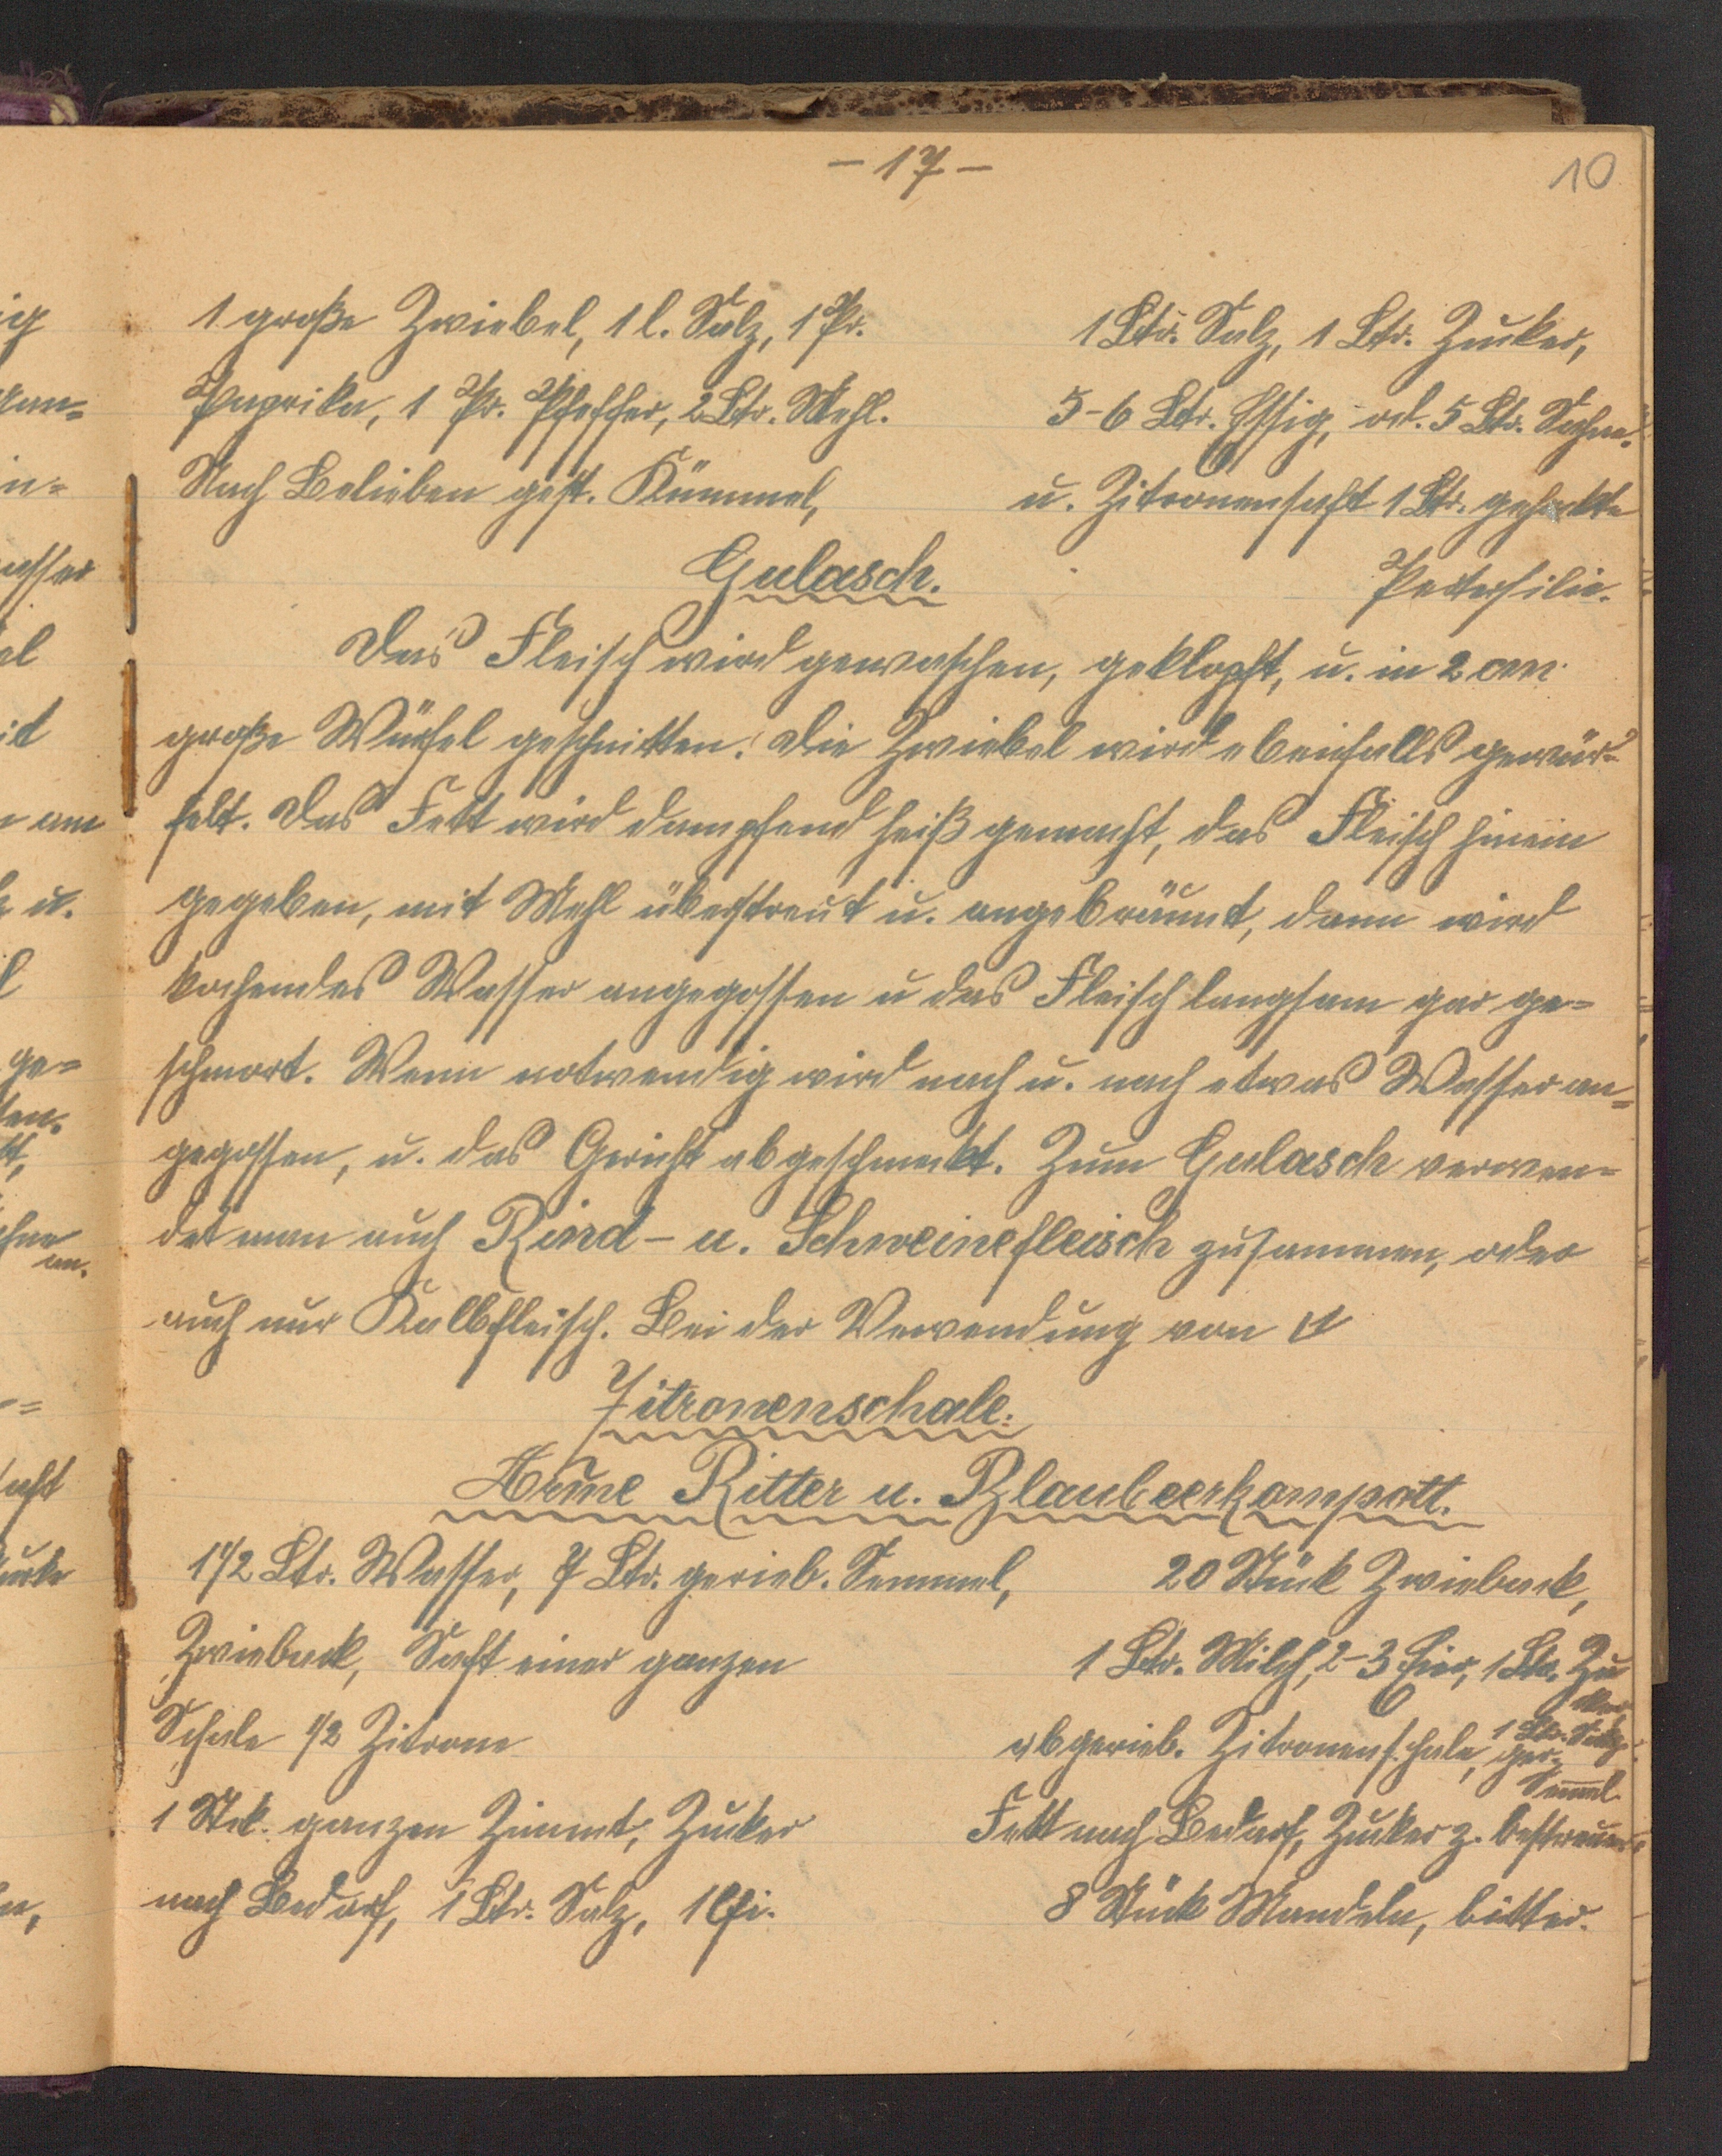 - 17 -
10
1 große Zwiebel, 1 l. Salz, 1 Pr.
Paprika, 1 Pr. Pfeffer, 2 Ltr. Mehl.
Nach Belieben gest. Kümmel,
1 Ltr. Salz, 1 Ltr. Zucker,
5-6 Ltr. Essig, od. 5 Ltr. Sahne.
u. Zitronensaft 1 Ltr. gehackte
Petersilie.
Gulasch.
Das Fleisch wird gewaschen, geklopft, u. in 2 cm
große Würfel geschnitten. Die Zwiebel wird ebenfalls gewür-
felt. Das Fett wird dampfend heiß gemacht, das Fleisch hinein
gegeben, mit Mehl überstreut u. angebräunt, dann wird
kochendes Wasser angegossen u das Fleisch langsam gar ge=
schmort. Wenn notwendig wird nach u. nach etwas Wasser an=
gegossen, u. das Gericht abgeschmeckt. Zum Gulasch verwen=
det man auch Rind- u. Schweinefleisch zusammen, oder
auch nur Kalbfleisch. Bei der Verwendung von
Zitronenschale.
Arme Ritter u. Blaubeerkompott.
1 1/2 Ltr. Wasser, 7 Ltr. gerieb. Semmel,
Zwieback, Saft einer ganzen
Schale 1/2 Zitrone
1 Stck. ganzen Zimmt, Zucker
nach Bedarf, 1 Ltr. Salz, 1 Ei.
20 Stück Zwieback,
1 Ltr. Milch, 2-3 Eier, 1 Ltr. Zu
cker
abgerieb. Zitronenschale, 1 Ltr. Salz
ger.
Semmel.
Fett nach Bedarf, Zucker z. bestreuen.
8 Stück Mandeln, bitter.